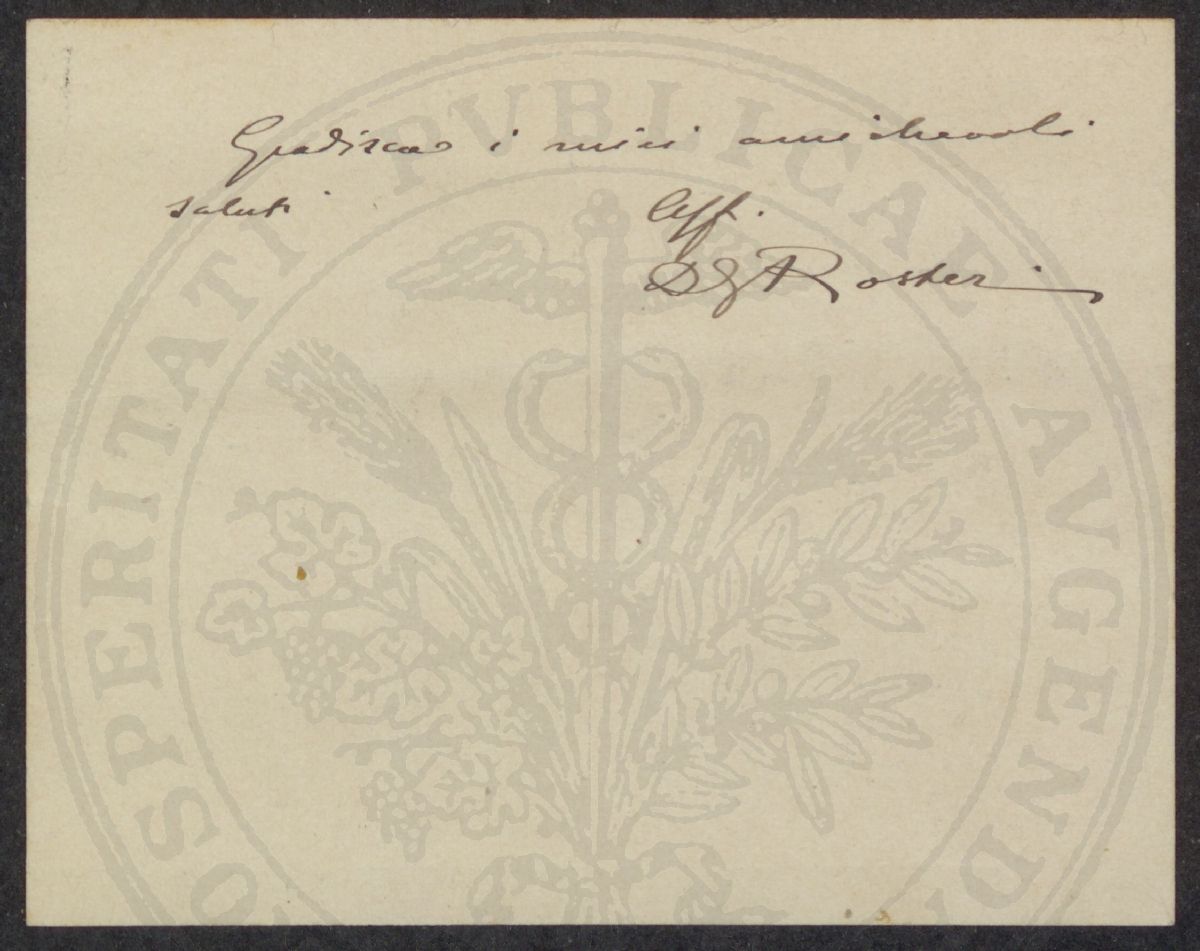 Gradisca i miei amichevoli
saluti
Aff.
D G Roster
PROSPERITATI PVBLICAE AVGENDAE